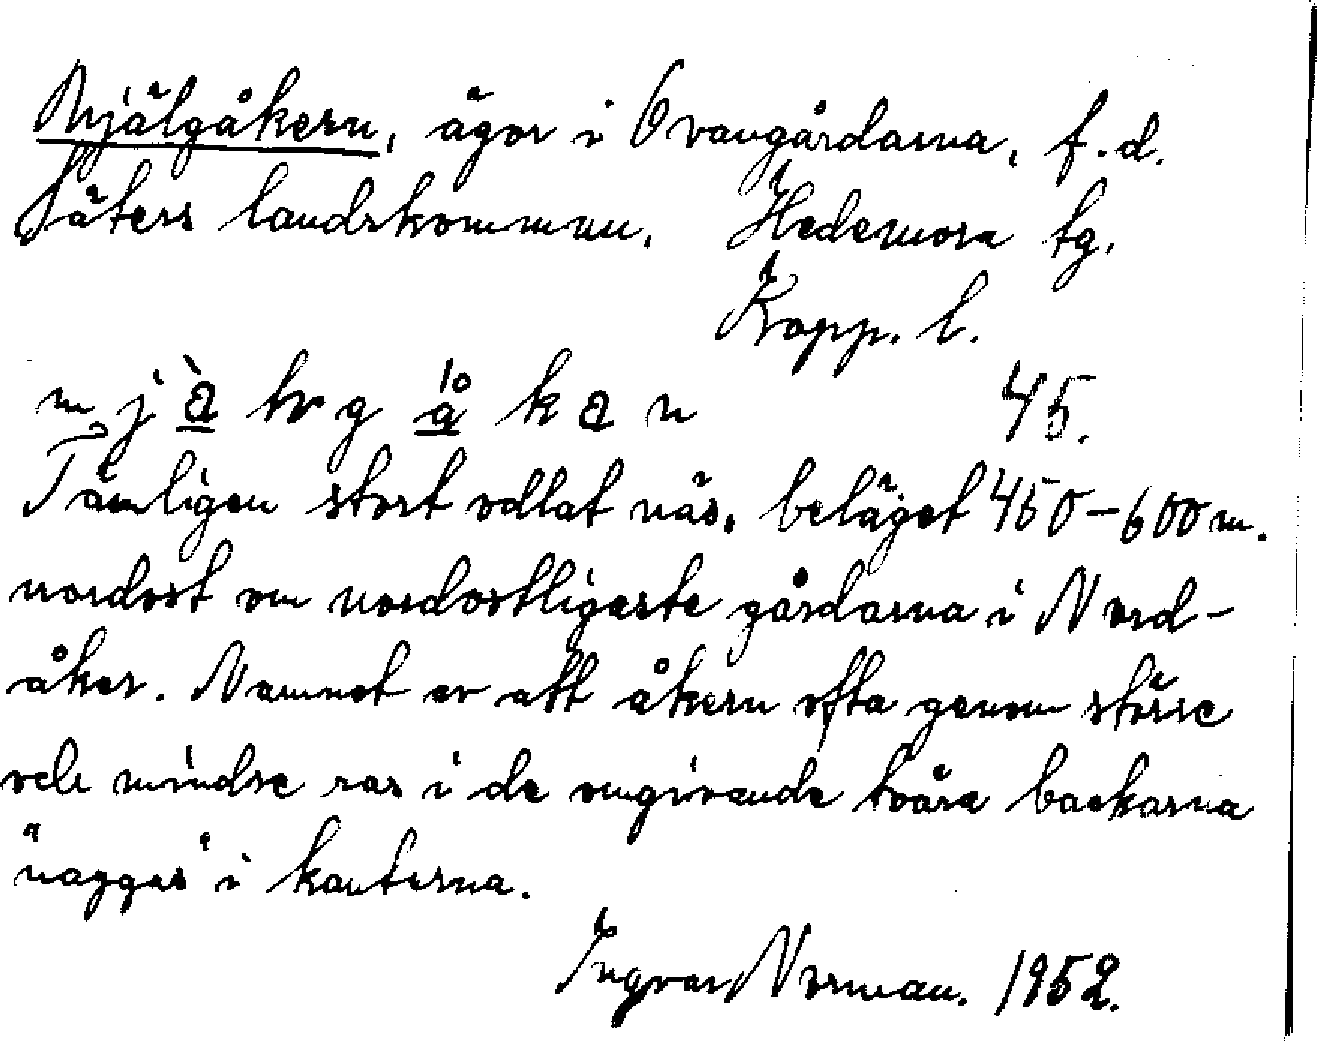 Mjälgåkern, ägor i Ovangårdarna, f.d.
Säters landskommun. Hedemora tg.
Kopp. l.
45.
Tämligen stort odlat näs, beläget 450-600 m.
nordost om nordostligaste gårdarna i Nord-
åker. Namnet av att åkern ofta genom större
och mindre ras i de omgivande tvära backarna
"naggas" i kanterna.
Ingvar Norman. 1952.